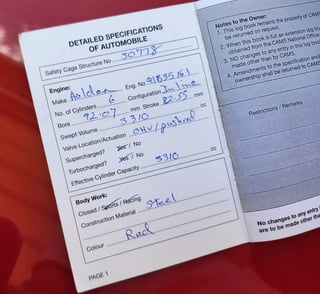 DETAILED SPECIFICATIONS
OF AUTOMOBILE
Safety Cage Structure No 30778
Engine:
Make Holden Eng. No
No. of Cylinders 6 Configuration In line
Bore 92.07 mm Stroke 82.55 mm
Swept Volume 3310 cc
Valve Location/Actuation OHV/pushrod
Supercharged? Yes / No
Turbocharged? Yes / No
Effective Cylinder Capacity 3310 cc
Body Work:
Closed / Sports / Racing
Construction Material Steel
Colour Red
PAGE 1
Notes to the Owner:
1. This log book remains the property of CAMS
2. When this book is full an extension log
obtained from the CAMS National Office
3. NO changes to any entry in this log book
made other than by CAMS.
4. Amendments to the specification and
ownership shall be returned to CAMS
Restrictions / Remarks
No changes to any entry
are to be made other